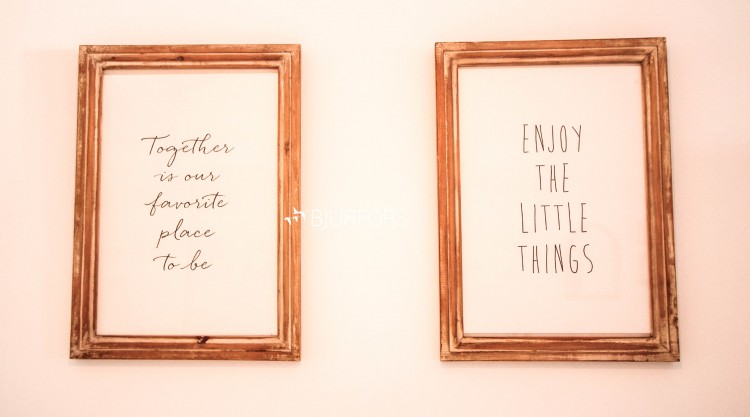 Together
is our
favorite
place
to be
BJURFORS
ENJOY
THE
LITTLE
THINGS